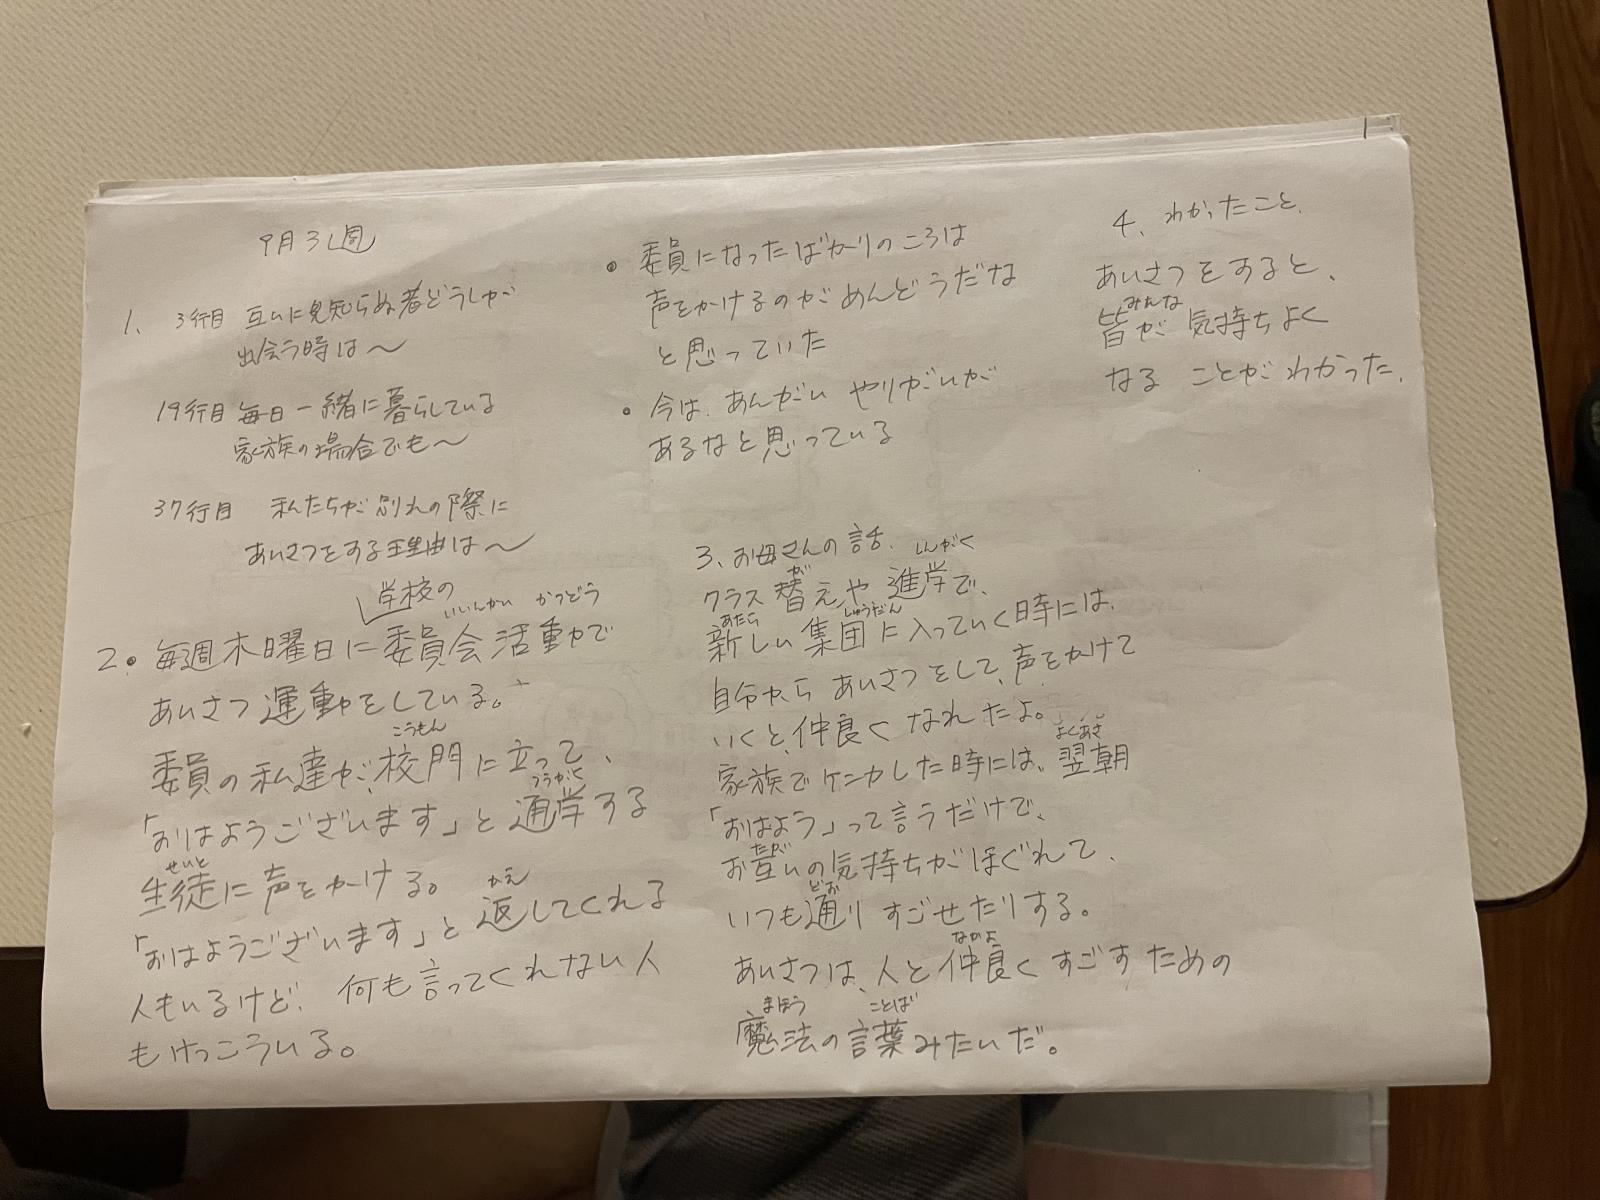 9月3週
1、 3行目 互いに見知らぬ者どうしが
出会う時は〜
19行目 毎日一緒に暮らしている
家族の場合でも〜
37行目 私たちが別れの際に
あいさつをする理由は〜
学校の
いいんかい かつどう
2 • 毎週木曜日に委員会活動で
あいさつ運動をしている。
こうもん
委員の私達が、校門に立って、
つうがく
「おはようございます」と通学する
せいと
生徒に声をかける。
かえ
「おはようございます」と返してくれる
人もいるけど、何も言ってくれない人
もけっこういる。
• 委員になったばかりのころは
声をかけるのがめんどうだな
と思っていた
• 今は、あんがい やりがいが
あるなと思っている
3、お母さんの話、
が しんがく
クラス替えや進学で、
あたら しゅうだん
新しい集団に入っていく時には、
自分からあいさつをして、声をかけて
いくと、仲良くなれたよ。
よくあさ
家族でケンカした時には、翌朝
「おはよう」って言うだけで、
たが
お互いの気持ちがほぐれて、
どお
いつも通りすごせたりする。
なかよ
あいさつは、人と仲良くすごすための
まほう ことば
魔法の言葉みたいだ。
4、わかったこと、
あいさつをすると、
みんな
皆が気持ちよく
なる ことがわかった、